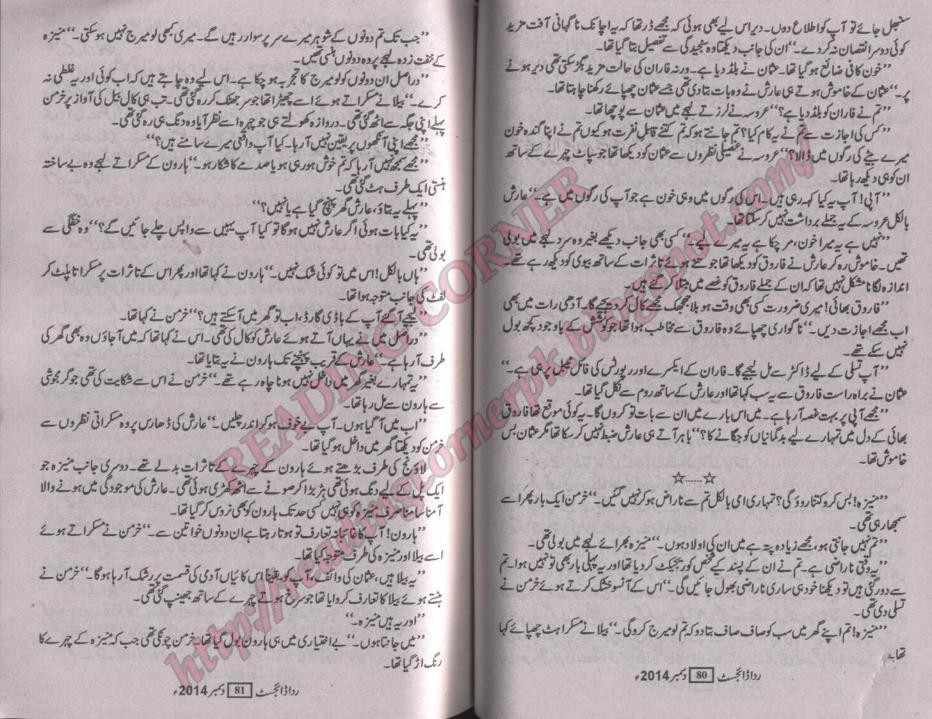 سنبھل جائے تو آپ کو اطلاع دوں۔ دیر اس لیے بھی ہوئی کہ مجھے ڈر تھا کہ یہ اچانک ناگہانی آفت مزید
کوئی دوسرا نقصان نہ کر دے۔“ ان کی جانب دیکھتا وہ سنجیدگی سے تفصیل بتا گیا تھا۔
”خون کافی ضائع ہو گیا تھا۔ عثمان نے بلڈ دیا ہے۔ ورنہ فاران کی حالت مزید بگڑ سکتی تھی دیر ہونے
پر۔“ عثمان کے خاموش ہوتے ہی عارش نے وہ بات بتا دی تھی جسے عثمان چھپائے رکھنا چاہتا تھا۔
”تم نے فاران کو بلڈ دیا ہے؟“ عروسہ نے لرزتے لہجے میں عثمان سے پوچھا تھا۔
”کس کی اجازت سے تم نے یہ کام کیا؟ تم جانتے ہو کہ تم کتنے قابل نفرت ہو کیوں تم نے اپنا گندہ خون
میرے بیٹے کی رگوں میں ڈالا؟“ عروسہ نے غضیلی نظروں سے عثمان کو دیکھا تھا جو سپاٹ چہرے کے ساتھ
ان کو ہی دیکھ رہا تھا۔
”آپی! آپ یہ کیا کہہ رہی ہیں۔ اس کی رگوں میں وہی خون ہے جو آپ کی رگوں میں ہے۔“ عارش
بالکل عروسہ کے یہ جملے برداشت نہیں کر سکتا تھا۔
”نہیں ہے یہ میرا خون، مر چکا ہے یہ میرے لیے۔“ کسی بھی جانب دیکھے بغیر وہ سرد لہجے میں بولی
تھیں۔ خاموش رہ کر عارش نے فاروق کو دیکھا تھا جو تنے ہوئے تاثرات کے ساتھ بیوی کو دیکھ رہے تھے۔
اندازہ لگانا مشکل نہیں تھا کہ ان کے جملے فاروق کو غصے میں مبتلا کر گئے ہیں۔
”فاروق بھائی! میری ضرورت کسی بھی وقت ہو بلا جھجک مجھے کال کر دیجئے گا۔ آدھی رات میں بھی
اب مجھے اجازت دیں۔“ ناگواری چھپائے وہ فاروق سے مخاطب ہوا تھا جو کوشش کے باوجود کچھ بول
نہیں سکے تھے۔
”آپ تسلی کے لیے ڈاکٹر سے مل لیجیے گا۔ فاران کے ایکسرے اور رپورٹس کی فائل ٹیبل پر ہی ہے۔“
عثمان نے براہ راست فاروق سے یہ سب کہا تھا اور عارش کے ساتھ روم سے نکل گیا تھا۔
”مجھے آپی پر بہت غصہ آ رہا ہے۔ میں اس بارے میں ان سے بات تو کروں گا۔ یہ کوئی موقع تھا فاروق
بھائی کے دل میں تمہارے لیے بدگمانیاں کو جگانے کا؟“ باہر آتے ہی عارش ضبط نہیں کر سکا تھا مگر عثمان بس
خاموش تھا۔
☆.....☆
”منیزہ! بس کرو کتنا روؤ گی؟ تمہاری امی بالکل تم سے ناراض ہو کر نہیں گئیں۔“ خرمن ایک بار پھر اسے
سمجھا رہی تھی۔
”تم نہیں جانتی ہو، مجھے زیادہ پتہ ہے میں ان کی اولاد ہوں۔“ منیزہ بھرائے لہجے میں بولی تھی۔
”یہ وقتی ناراضی ہے۔ تم نے ان کے پسند کیے شخص کو ریجیکٹ کر دیا تھا اور یہ پہلی بار بھی تو نہیں ہوا۔ تم
سے دور گئی ہیں تو دیکھنا خود ہی ساری ناراضی بھول جائیں گی۔“ اس کے آنسو خشک کرتے ہوئے خرمن نے
تسلی دی تھی۔
”منیزہ! تم اپنے گھر میں سب کو صاف صاف بتا دو کہ تم لو میرج کرو گی۔“ بیلا نے مسکراہٹ چھپائے کہا
تھا۔
ردا ڈائجسٹ 80 دسمبر 2014ء
”جب تک تم دونوں کے شوہر میرے سر پر سوار رہیں گے۔ میری بھی لو میرج نہیں ہو سکتی۔“ منیزہ
کے خفت زدہ لہجے پر وہ دونوں ہنسی تھیں۔
”دراصل ان دونوں کو لو میرج کا تجربہ ہو چکا ہے۔ اس لیے وہ چاہتے ہیں کہ اب کوئی اور یہ غلطی نہ
کرے۔“ بیلا نے مسکراتے ہوئے اسے چھیڑا تھا جو سر جھٹک کر رہ گئی تھی۔ تب ہی کال بیل کی آواز پر خرمن
پہلے اپنی جگہ سے اٹھ گئی تھی۔ دروازہ کھولتے ہی جو چہرہ اسے نظر آیا وہ دنگ ہی رہ گئی تھی۔
”مجھے اپنی آنکھوں پر یقین نہیں آ رہا۔ کیا آپ واقعی میرے سامنے ہیں؟“
”مجھے سمجھ نہیں آ رہا کہ تم خوش ہو رہی ہو یا صدمے کا شکار ہو۔“ ہارون کے مسکراتے لہجے پر وہ بے ساختہ
ہنستی ایک طرف ہٹ گئی تھی۔
”پہلے یہ بتاؤ، عارش گھر پہنچ گیا ہے یا نہیں؟“
”یہ کیا بات ہوئی اگر عارش نہیں ہو گا تو کیا آپ یہیں سے واپس چلے جائیں گے؟“ وہ خفگی سے
بولی تھی۔
”ہاں بالکل! اس میں تو کوئی شک نہیں۔“ ہارون نے کہا تھا اور پھر اس کے تاثرات پر مسکراتا پلٹ کر
لفٹ کی جانب متوجہ ہوا تھا۔
”لیجیے آ گئے آپ کے باڈی گارڈ، اب تو گھر میں آ سکتے ہیں؟“ خرمن نے کہا تھا۔
”دراصل میں نے یہاں آتے ہوئے عارش کو کال کی تھی۔ اس نے کہا تھا کہ میں آ جاؤں وہ بھی گھر کی
طرف آ رہا ہے۔“ عارش کے قریب پہنچنے تک ہارون نے یہ بتایا تھا۔
”یہ تمہارے بغیر گھر میں داخل نہیں ہونا چاہ رہے تھے۔“ خرمن نے اس سے شکایت کی تھی جو گرمجوشی
سے ہارون سے مل رہا تھا۔
”اب میں آ گیا ہوں۔ آپ بے خوف ہو کر اندر چلیں۔“ عارش کی ڈھارس پر وہ مسکراتی نظروں سے
خرمن کو دیکھتا گھر میں داخل ہو گیا تھا۔
لاؤنج کی طرف بڑھتے ہوئے ہارون کے چہرے کے تاثرات بدلے تھے۔ دوسری جانب منیزہ جو
ایک پل کے لیے دنگ ہوئی تھی ہڑبڑا کر صوفے سے اٹھ کھڑی ہوئی تھی۔ عارش کی موجودگی میں ہونے والا
آمنا سامنا صرف منیزہ کو ہی نہیں کسی حد تک ہارون کو بھی نروس کر گیا تھا۔
”ہارون! آپ کا غائبانہ تعارف تو ہوتا رہتا ہے ان دونوں خواتین سے۔“ خرمن نے مسکراتے ہوئے
اسے بیلا اور منیزہ کی طرف متوجہ کیا تھا۔
”یہ بیلا ہیں، عثمان کی وائف، آپ کو یقیناً اس کائیاں آدمی کی قسمت پر رشک آ رہا ہو گا۔“ خرمن نے
ہنستے ہوئے بیلا کا تعارف کروایا تھا جو سرخ ہوتے چہرے کے ساتھ جھینپ گئی تھی۔
”اور یہ ہیں منیزہ۔“
”میں جانتا ہوں۔“ بے اختیاری میں ہی ہارون بول گیا تھا۔ خرمن چونکی تھی جب کہ منیزہ کے چہرے کا
رنگ اڑ گیا تھا۔
ردا ڈائجسٹ 81 دسمبر 2014ء
READING CORNER
http://readingcornerpk.blogspot.com/